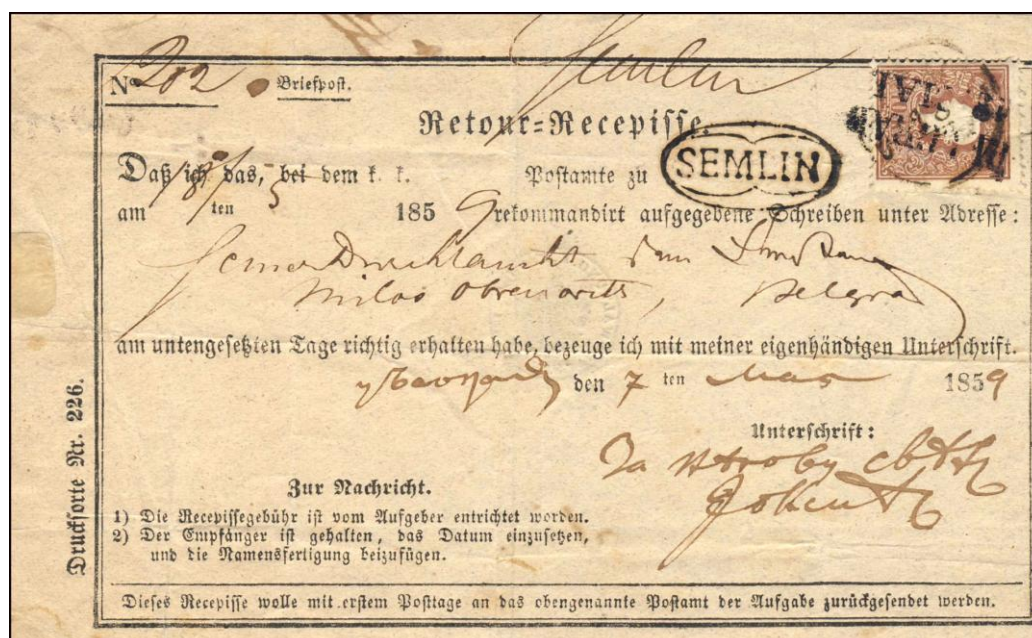 No 202 Briefpost. Semlin
Retour=Recepisse.
SEMLIN
Daß ich das, bei dem k. k. Postamte zu
am 18/5 ten 1859 rekommandirt aufgegebene Schreiben unter Adresse:
Seiner Durchlaucht dem
Milos Obrenovits, Belgrad
am untengesetzten Tage richtig erhalten habe, bezeuge ich mit meiner eigenhändigen Unterschrift.
у Београду den 7 ten Маја 1859
Unterschrift:
За
Zur Nachricht.
1) Die Recepissegebühr ist vom Aufgeber entrichtet worden.
2) Der Empfänger ist gehalten, das Datum einzusetzen,
und die Namensfertigung beizufügen.
Dieses Recepisse wolle mit erstem Posttage an das obengenannte Postamt der Aufgabe zurückgesendet werden.
Drucksorte Nr. 226.